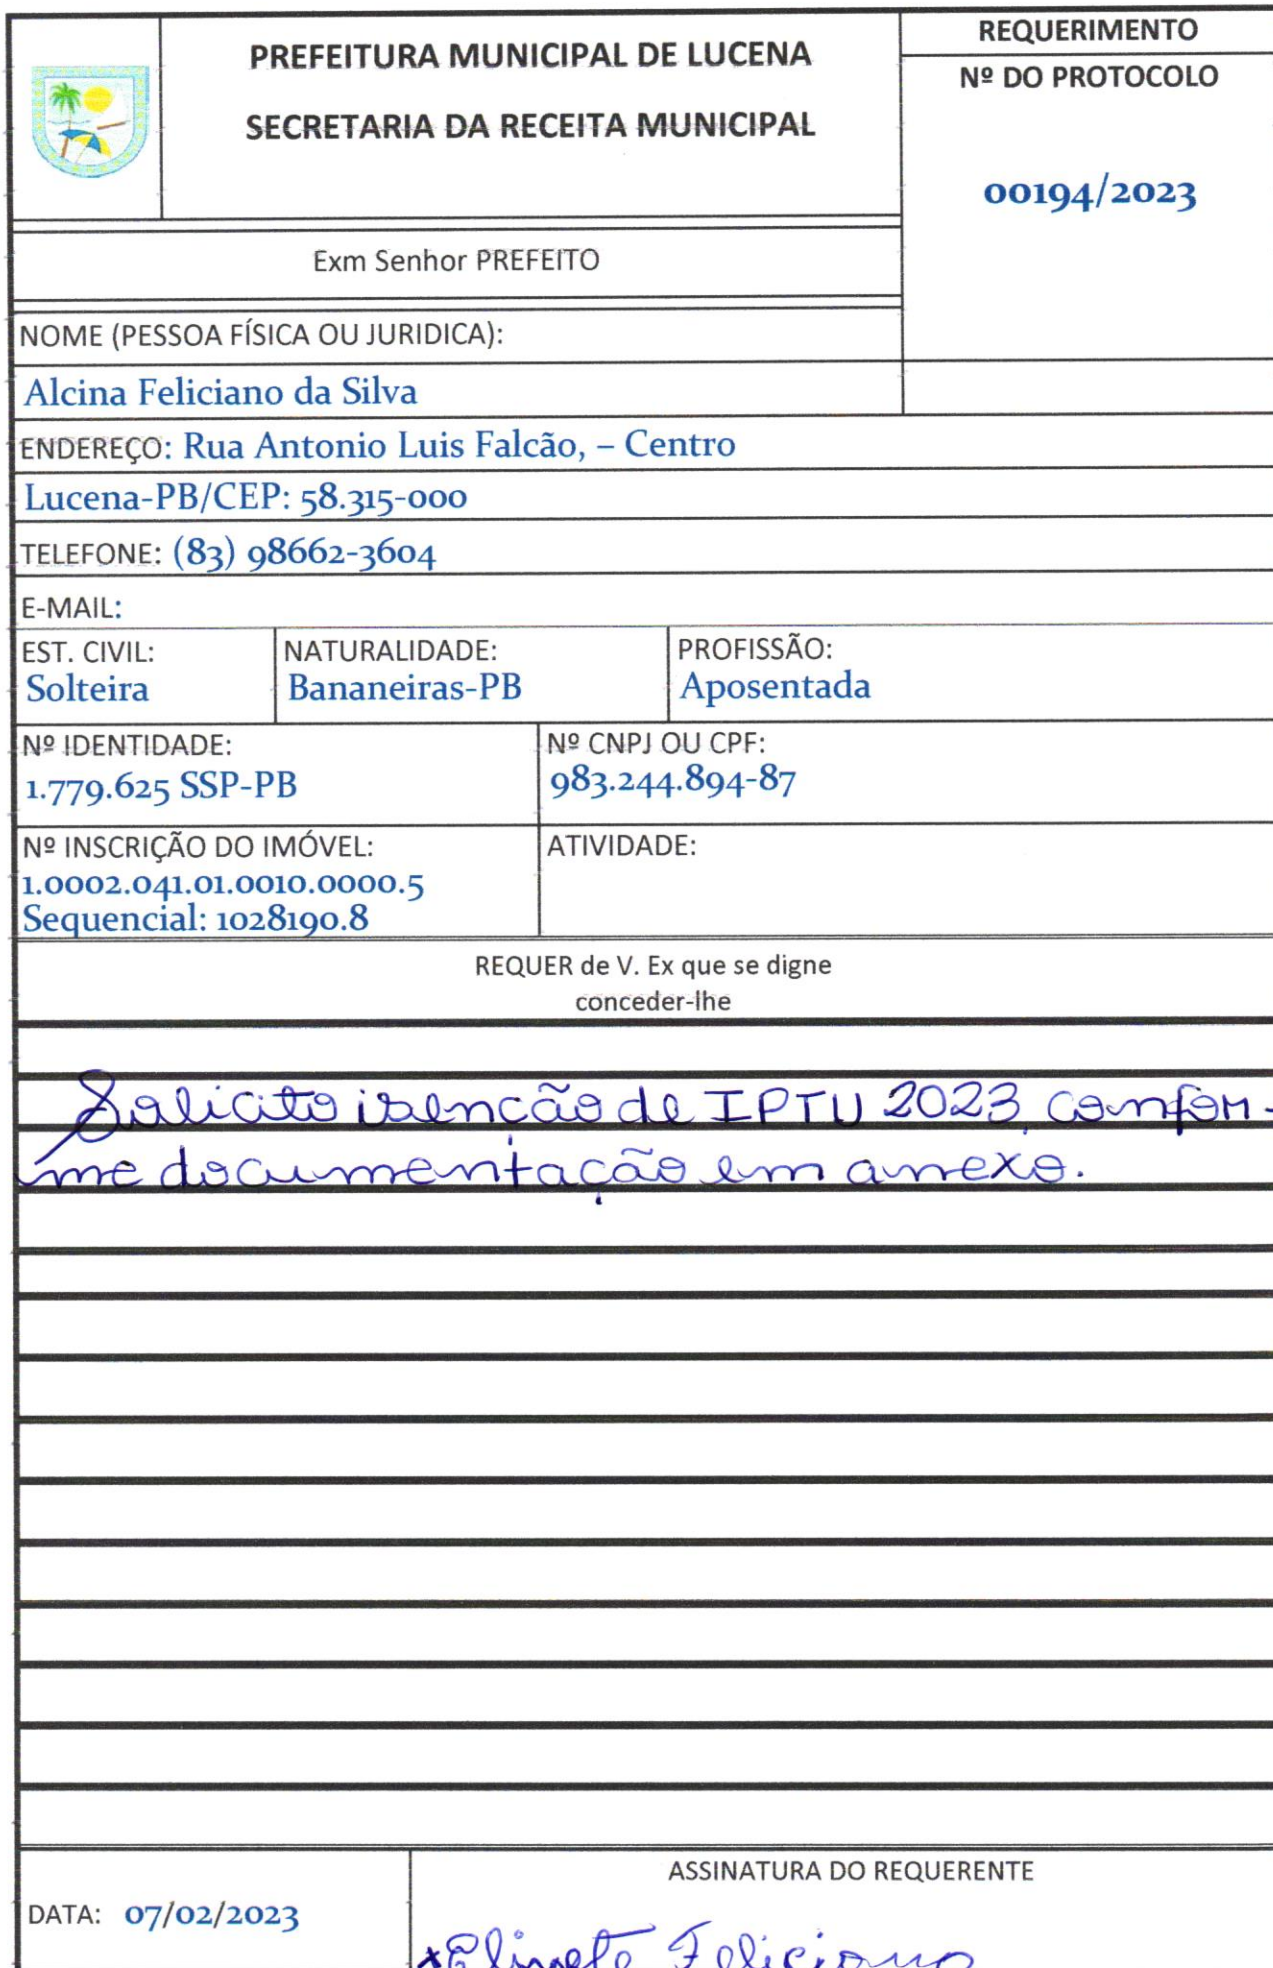 PREFEITURA MUNICIPAL DE LUCENA
SECRETARIA DA RECEITA MUNICIPAL
REQUERIMENTO
Nº DO PROTOCOLO
00194/2023
Exm Senhor PREFEITO
NOME (PESSOA FÍSICA OU JURIDICA):
Alcina Feliciano da Silva
ENDEREÇO: Rua Antonio Luis Falcão, – Centro
Lucena-PB/CEP: 58.315-000
TELEFONE: (83) 98662-3604
E-MAIL:
EST. CIVIL:
Solteira
NATURALIDADE:
Bananeiras-PB
PROFISSÃO:
Aposentada
Nº IDENTIDADE:
1.779.625 SSP-PB
Nº CNPJ OU CPF:
983.244.894-87
Nº INSCRIÇÃO DO IMÓVEL:
1.0002.041.01.0010.0000.5
Sequencial: 1028190.8
ATIVIDADE:
REQUER de V. Ex que se digne
conceder-lhe
Solicito isenção de IPTU 2023, confor-
me documentação em anexo.
DATA: 07/02/2023
ASSINATURA DO REQUERENTE
Feliciano